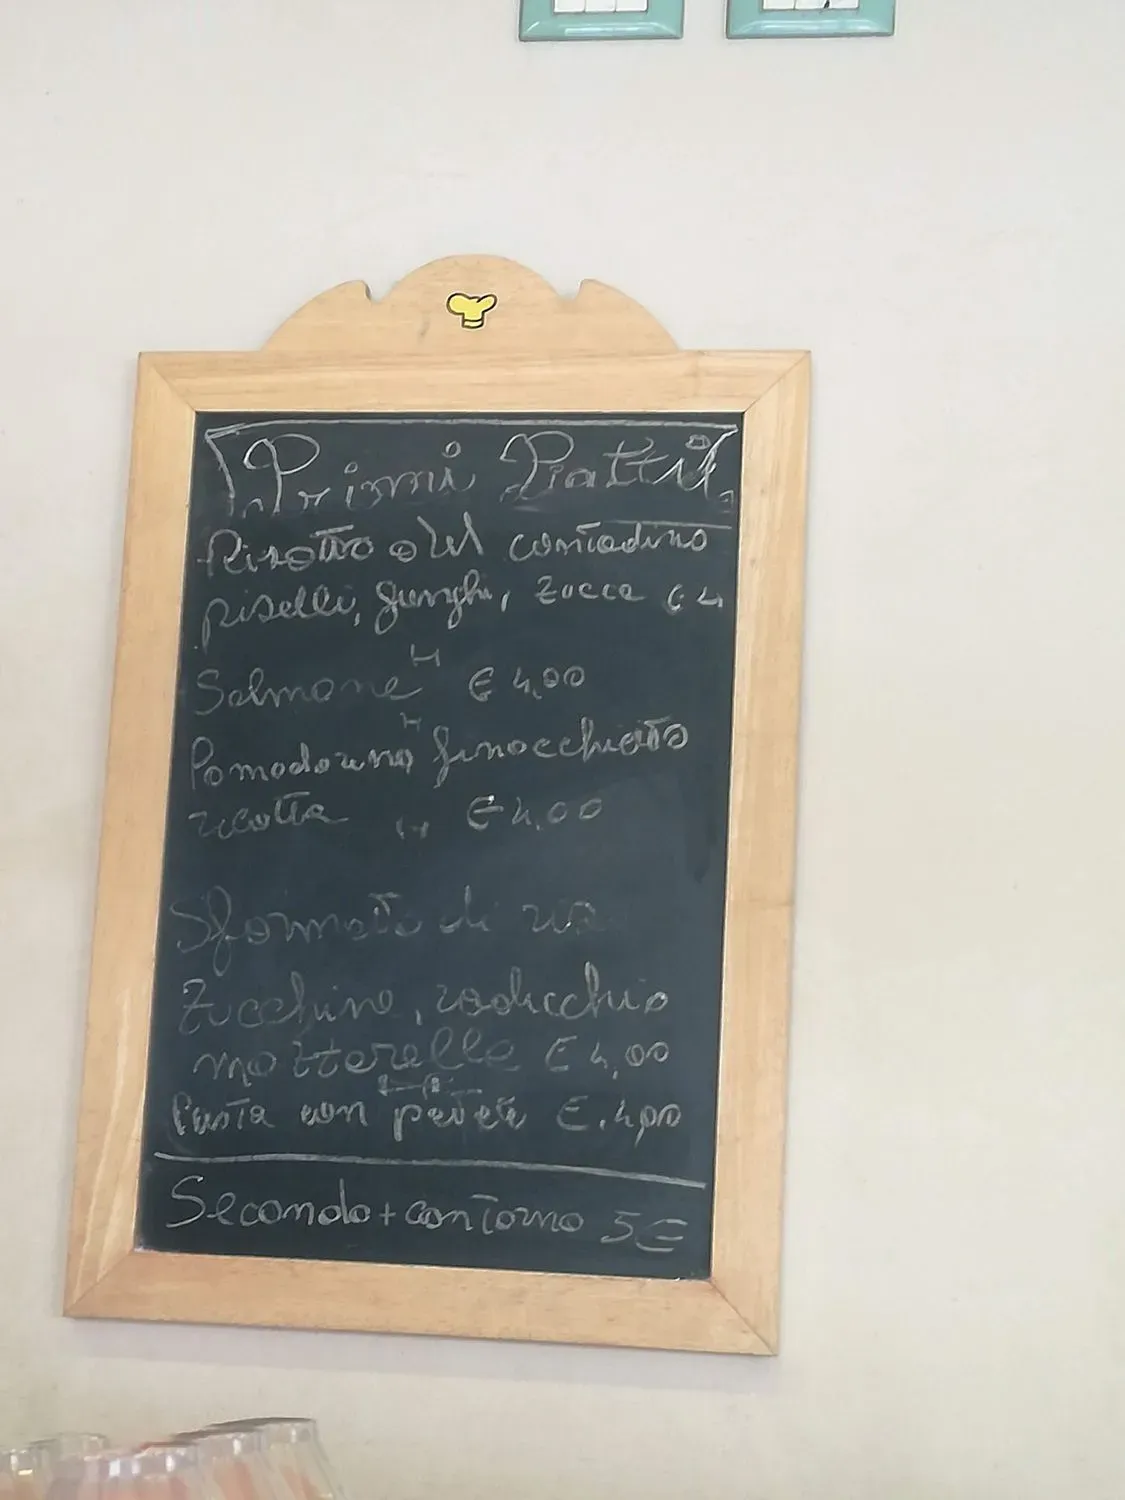 Primi Piatti
Risotto del contadino
piselli, funghi, zucca € 4
Salmone " € 4,00
Pomodorino, finocchietto
ricotta " € 4,00
Sformato di riso
Zucchine, radicchio
mozzarella € 4,00
Pasta con patate €. 4,00
Secondo + contorno 5 €